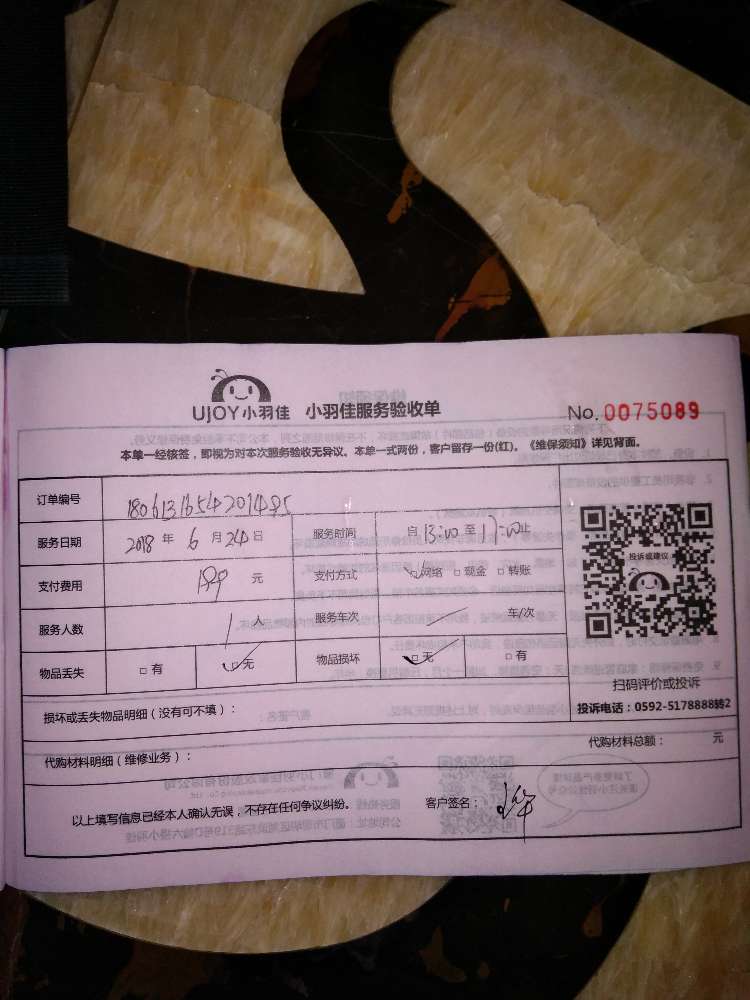 UJOY小羽佳 小羽佳服务验收单 No.0075089
本单一经核签，即视为对本次服务验收无异议。本单一式两份，客户留存一份(红)。《维保须知》详见背面。
订单编号
服务日期 2018 年 6 月 24 日 服务时间 自 13:00 至 17:00 止
支付费用 199 元 支付方式 ☑网络 □现金 □转账
服务人数 1 人 服务车次 车/次
物品丢失 □有 ☑无 物品损坏 ☑无 □有
投诉或建议
扫码评价或投诉
投诉电话：0592-5178888转2
损坏或丢失物品明细（没有可不填）：
代购材料明细（维修业务）： 代购材料总额： 元
以上填写信息已经本人确认无误，不存在任何争议纠纷。 客户签名：